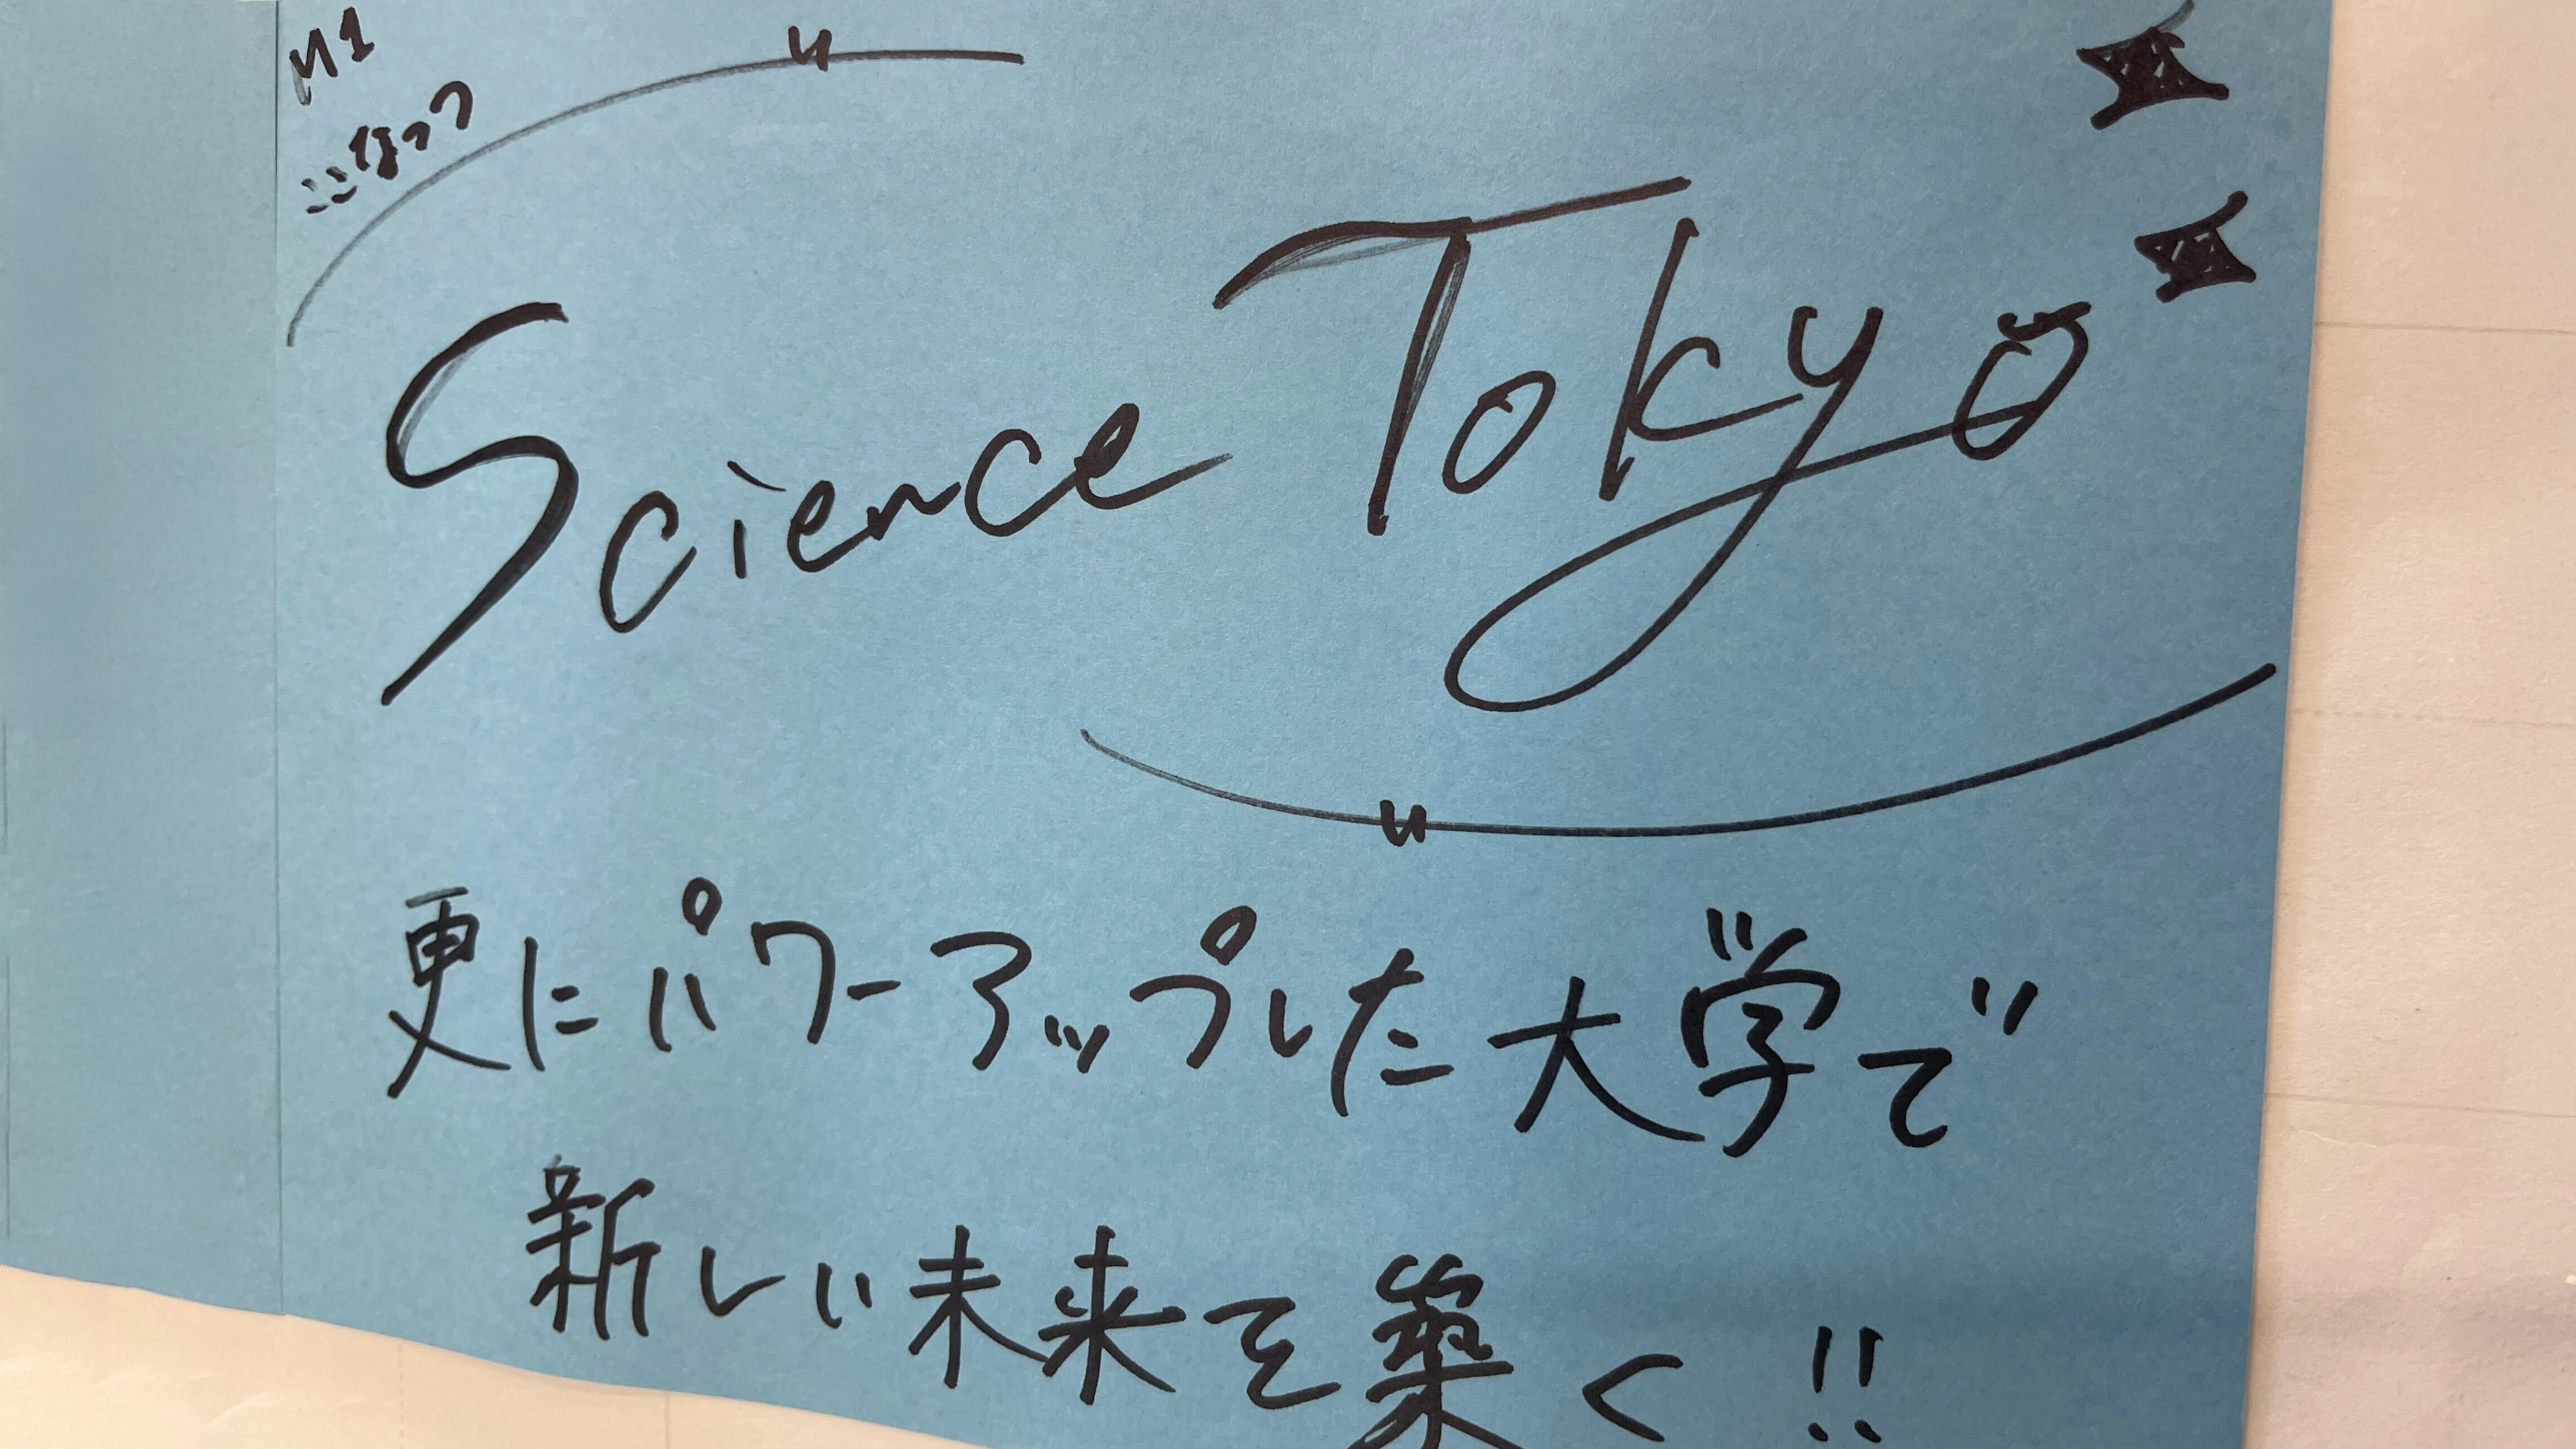 M1
こなつ
Science Tokyo
更にパワーアップした大学で
新しい未来を築く!!